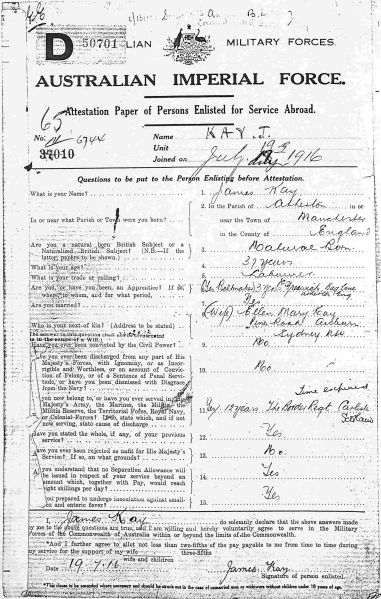 D 50701 LIAN MILITARY FORCES.
AUSTRALIAN IMPERIAL FORCE.
Attestation Paper of Persons Enlisted for Service Abroad.
65
No. 6744
37010
Name KAY J.
Unit 19th
Joined on July 1916
Questions to be put to the Person Enlisting before Attestation.
What is your Name? 1. James Kay
In or near what Parish or Town were you born? 2. In the Parish of Atherton in or
near the Town of Manchester
in the County of England
Are you a natural born British Subject or a
Naturalised British Subject? (N.B.—If the
latter, papers to be shown.) 3. Natural Born
What is your age? 4. 37 years
What is your trade or calling? 5. Labourer
Are you, or have you been, an Apprentice? If so,
where, to whom, and for what period, 6. 3 yrs
Are you married? 7. Yes
Who is your next of kin? (Address to be stated) 8. (Wife) Ellen Mary Kay
Road Auburn
Sydney NSW
Have you ever been convicted by the Civil Power? 9. No.
Have you ever been discharged from any part of His
Majesty's Forces, with Ignominy, or as Incor-
rigible and Worthless, or on account of Conviction
of Felony, or of a Sentence of Penal Servi-
tude, or have you been dismissed with Disgrace
from the Navy? 10. No.
you now belong to, or have you ever served in, His
Majesty's Army, the Marines, the Militia, the
Militia Reserve, the Territorial Force, Royal Navy,
or Colonial Forces? If so, state which, and if not
now serving, state cause of discharge 11. Yes. 12 years The Border Regt. Carlisle
Time expired
Have you stated the whole, if any, of your previous
service? 12. Yes
Have you ever been rejected as unfit for His Majesty's
Service? If so, on what grounds? 13. No.
you understand that no Separation Allowance will
be issued in respect of your service beyond an
amount which, together with Pay, would reach
eight shillings per day? 14. Yes
you prepared to undergo inoculation against small-
pox and enteric fever? 15. Yes
I, James Kay do solemnly declare that the above answers made
by me to the above questions are true, and I am willing and hereby voluntarily agree to serve in the Military
Forces of the Commonwealth of Australia within or beyond the limits of the Commonwealth.
*And I further agree to allot not less than two-fifths of the pay payable to me from time to time during
three-fifths
my service for the support of my wife
wife and children
Date 19.7.16 James Kay
Signature of person enlisted.
*This clause to be amended where necessary and should be struck out in the case of unmarried men or widowers without children under 18 years of age.